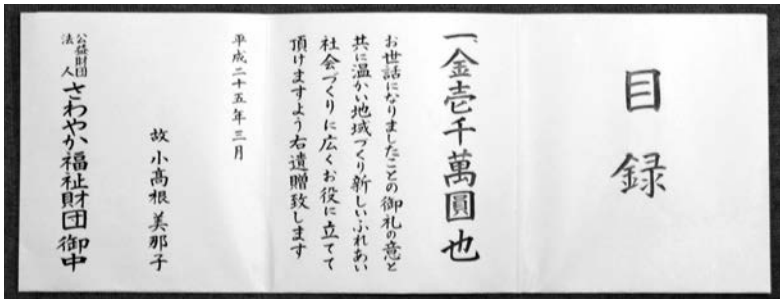 目録
一、金壱千萬圓也
お世話になりましたことの御礼の意と
共に温かい地域づくり新しいふれあい
社会づくりに広くお役に立てて
頂けますよう右遺贈致します
平成二十五年三月
故 小髙根 美那子
公益財団法人 さわやか福祉財団 御中